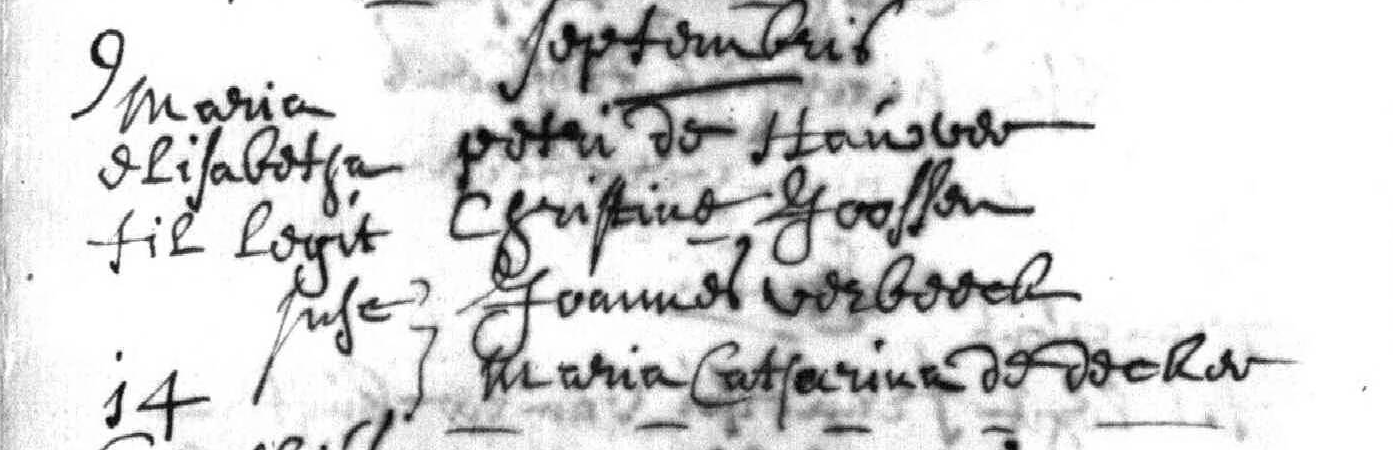 Septembris
9
Maria
elisabetha petri de Hauwer
fil legit Christine Goossen
susc Joannes verboeck
14 Maria Catharina de decker